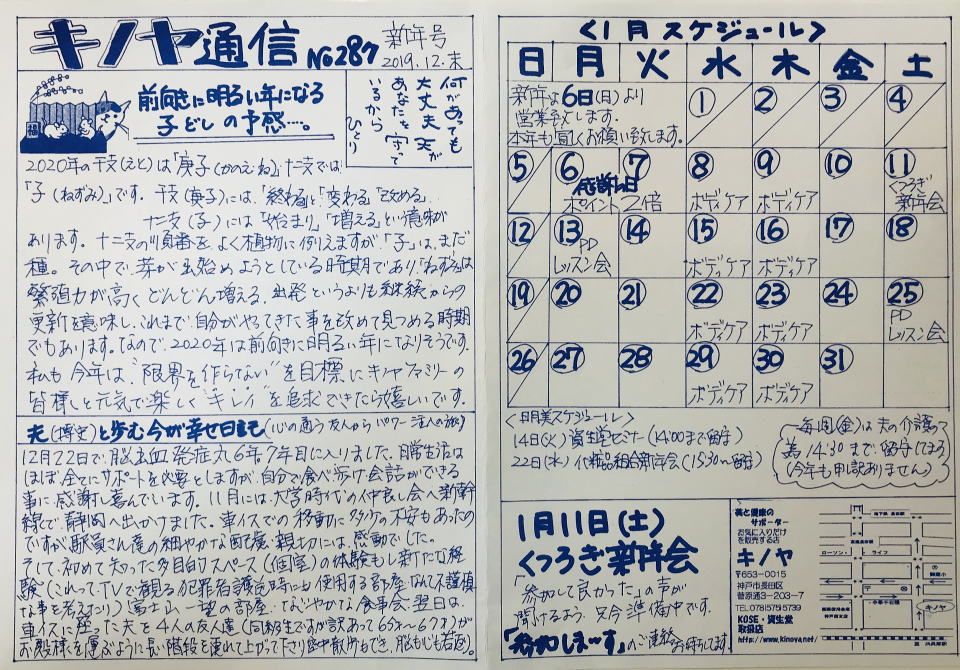 キノヤ通信 No287
新年号
2019.12.末
前向きに明るい年になる
子どしの予感…。
何があっても
大丈夫 天が
あなたを守って
いるから
ひとり
福
2020年の干支(えと)は「庚子(かのえね)」十二支では
「子(ねずみ)」です。干支(庚子)には、「終わる」と「変わる」「改める」
十二支(子)には「始まり」、「増える」という意味が
あります。十二支の順番をよく植物に例えますが、「子」は、まだ
種。その中で、芽が出始めようとしている時期であり、「ねずみ」は
繁殖力が高くどんどん増える、出発というよりも継続からの
更新を意味し、これまで自分がやってきた事を改めて見つめる時期
でもあります。なので、2020年は前向きに明るい年になりそうです。
私も今年は、"限界を作らない"を目標にキノヤファミリーの
皆様と元気で楽しく"キレイ"を追求できたら嬉しいです。
夫(博史)と歩む今が幸せ日記(心の通う友人からパワー注入の旅)
12月22日で、脳出血発症丸6年7年目に入りました。日常生活は
ほぼ全てにサポートを必要としますが、自分で食べ歩け会話ができる
事に感謝し喜んでいます。11月には、大学時代の仲良し会へ新幹
線で静岡へ出かけました。車イスでの移動に多少の不安もあったの
ですが駅員さん達の細やかな配慮、親切には、感動でした。
そして、初めて知った多目的スペース(個室)の体験もし新たな経
験(これってTVで観る犯罪者護送時にも使用する部屋、なんて不謹慎
な事を考えたり)富士山一望の部屋、なごやかな食事会、翌日は、
車イスに座った夫を4人の友人達(同級生ですが訳あって65才〜67才)が
お殿様を運ぶように長い階段を連れて上がって下さり館内散歩もでき、脳もじも若返り。
〈1月スケジュール〉
日 月 火 水 木 金 土
新年は6日(月)より
営業致します。
本年も宜しくお願い致します。
1 2 3 4
5 6 7 8 9 10 11
感謝の日
ポイント2倍
ボディケア ボディケア
くつろぎ
新年会
12 13 14 15 16 17 18
PD
レッスン会
ボディケア ボディケア
19 20 21 22 23 24 25
ボディケア ボディケア
PD
レッスン会
26 27 28 29 30 31
ボディケア ボディケア
〈明美スケジュール〉
14日(火)資生堂セミナー(14:00まで留守)
22日(水)化粧品組合新年会(15:30〜留守)
毎週(金)は夫の介護の
為14:30まで留守してます
(今年も申訳ありません)
1月11日(土)
くつろぎ新年会
「参加して良かった」の声が
聞けるよう只今準備中です。
「参加しまーす」のご連絡
お待ちしてます。
美と健康の
サポーター
お気に入りだけ
を販売する店
キノヤ
〒653-0015
神戸市長田区
菅原通3-203-7
TEL078(575)5739
KOSE・資生堂
取扱店
http://www.kinoya.net/
ローソン
ライフ
キノヤ